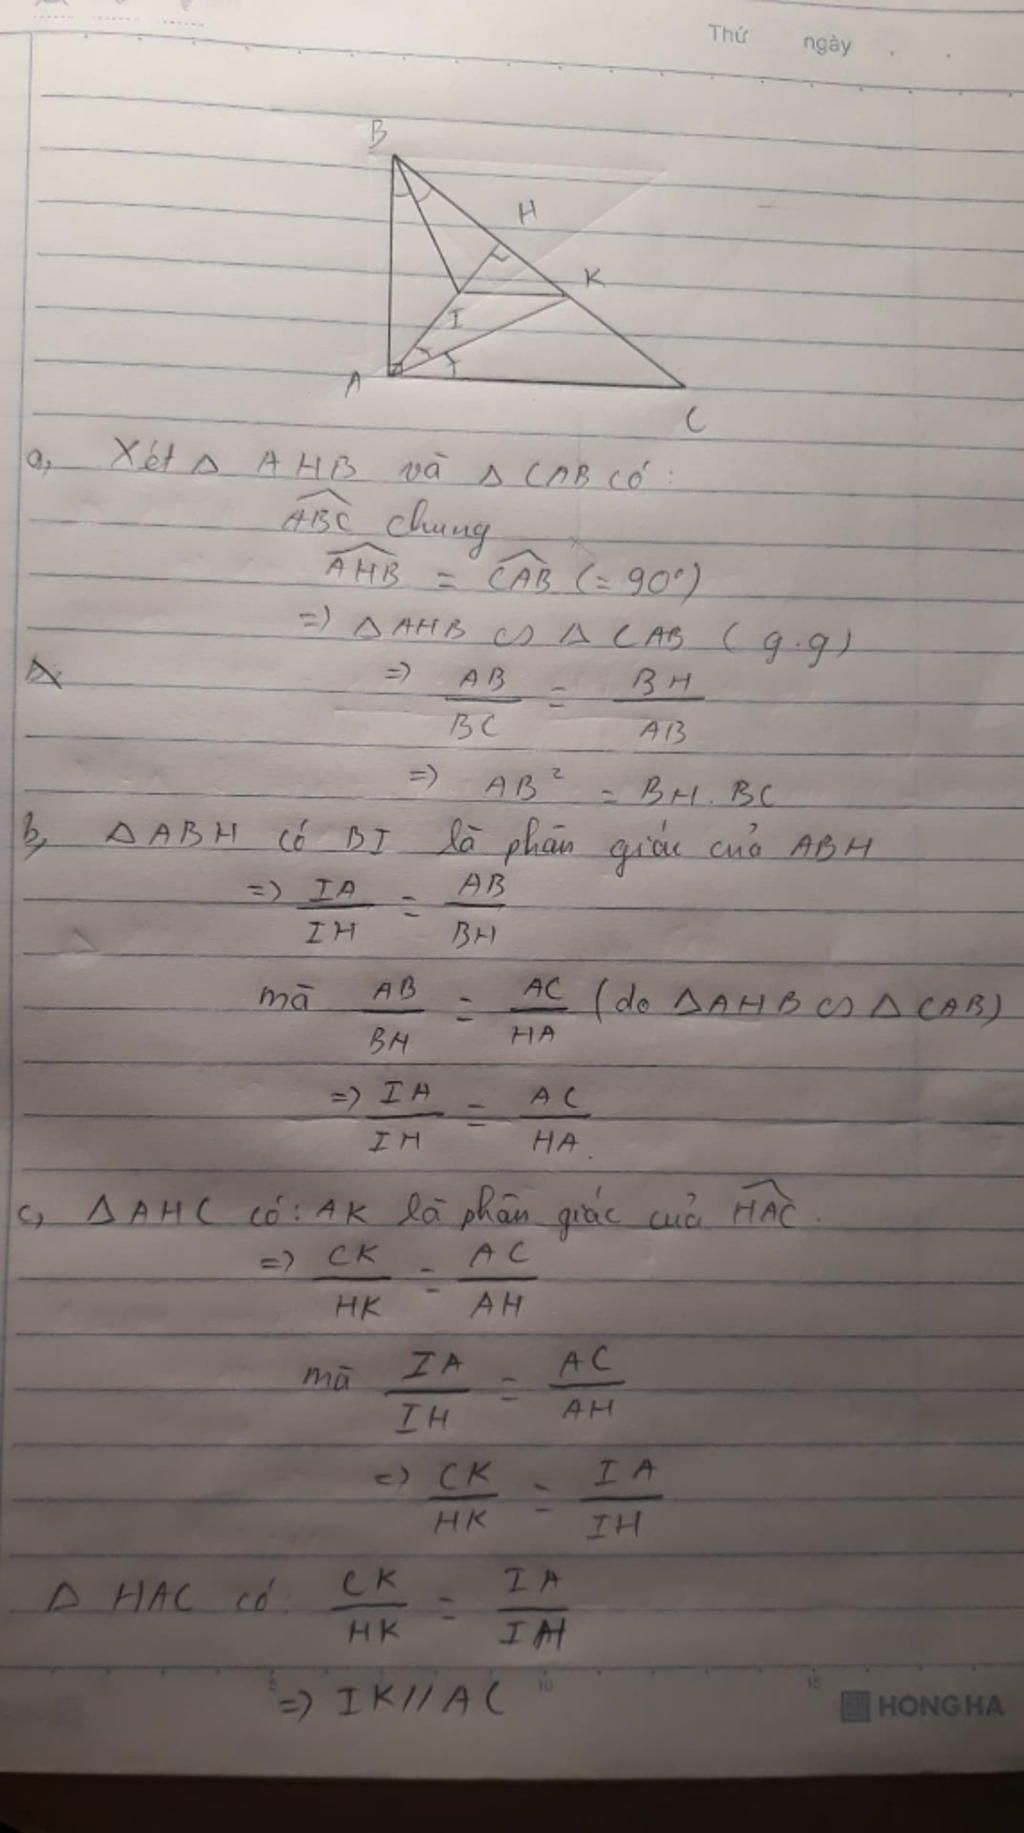 Thứ ngày
B
H
K
I
A
C
a, Xét Δ AHB và Δ CAB có :
\widehat{ABC} chung
\widehat{AHB} = \widehat{CAB} (= 90°)
=> Δ AHB ∽ Δ CAB ( g.g)
=> \frac{AB}{BC} = \frac{BH}{AB}
=> AB² = BH. BC
b, Δ ABH có BI là phân giác của ABH
=> \frac{IA}{IH} = \frac{AB}{BH}
mà \frac{AB}{BH} = \frac{AC}{HA} (do Δ AHB ∽ Δ CAB)
=> \frac{IA}{IH} = \frac{AC}{HA}.
c, Δ AHC có: AK là phân giác của \widehat{HAC}.
=> \frac{CK}{HK} = \frac{AC}{AH}
mà \frac{IA}{IH} = \frac{AC}{AH}
=> \frac{CK}{HK} = \frac{IA}{IH}
Δ HAC có \frac{CK}{HK} = \frac{IA}{IH}
5 10 15
=> IK // AC
HONG HA